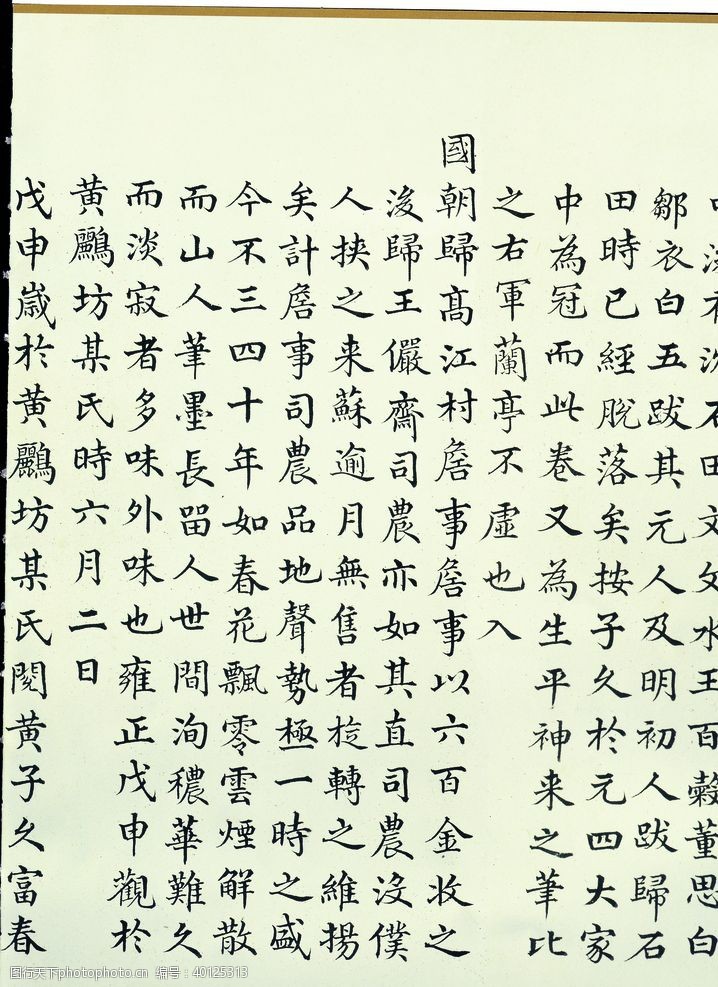 没有沈石田文文水王百穀董思白
鄒衣白五跋其元人及明初人跋歸石
田時已經脫落矣按子久於元四大家
中為冠而此卷又為生平神来之筆比
之右軍蘭亭不虛也入
國朝歸髙江村詹事詹事以六百金收之
後歸王儼齋司農亦如其直司農没僕
人挟之来蘇逾月無售者旋轉之維揚
矣計詹事司農品地聲勢極一時之盛
今不三四十年如春花飄零雲煙解散
而山人筆墨長留人世間洵穠華難久
而淡寂者多味外味也雍正戊申觀於
黄鸝坊某氏時六月二日
戊申歲於黄鸝坊某氏閱黄子久富春
图行天下photophoto.cn 编号:40125313